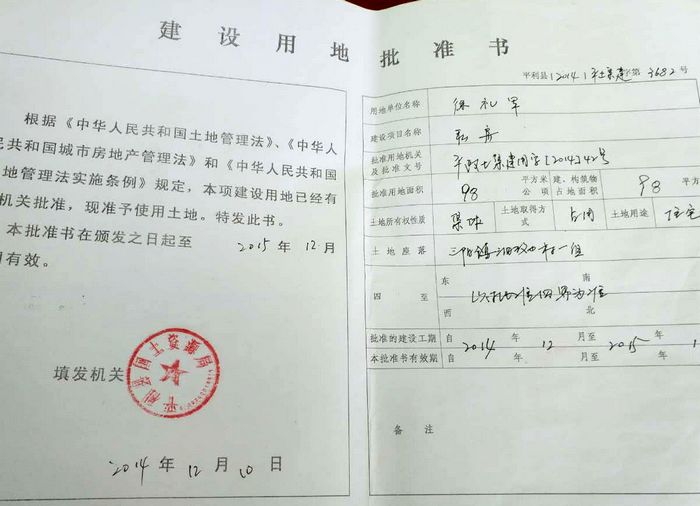 建设用地批准书
根据《中华人民共和国土地管理法》、《中华人
民共和国城市房地产管理法》和《中华人民共和国
地管理法实施条例》规定，本项建设用地已经有
机关批准，现准予使用土地。特发此书。
本批准书在颁发之日起至 2015 年 12 月
有效。
平利县国土资源局
填发机关
2014 年 12 月 10 日
平利县（2014）平土集建字第3682号
用地单位名称 徐礼军
建设项目名称 私房
批准用地机关及批准文号 平政土集建用字[2014]42号
批准用地面积 98 平方米 公顷 建、构筑物占地面积 98 平方
土地所有权性质 集体 土地取得方式 占用 土地用途 住宅
土地座落 三阳镇 村一组
四至 东 南 西 北
批准的建设工期 自 2014 年 12 月至 2015 年 1
本批准书有效期 自 年 月至 年
备注